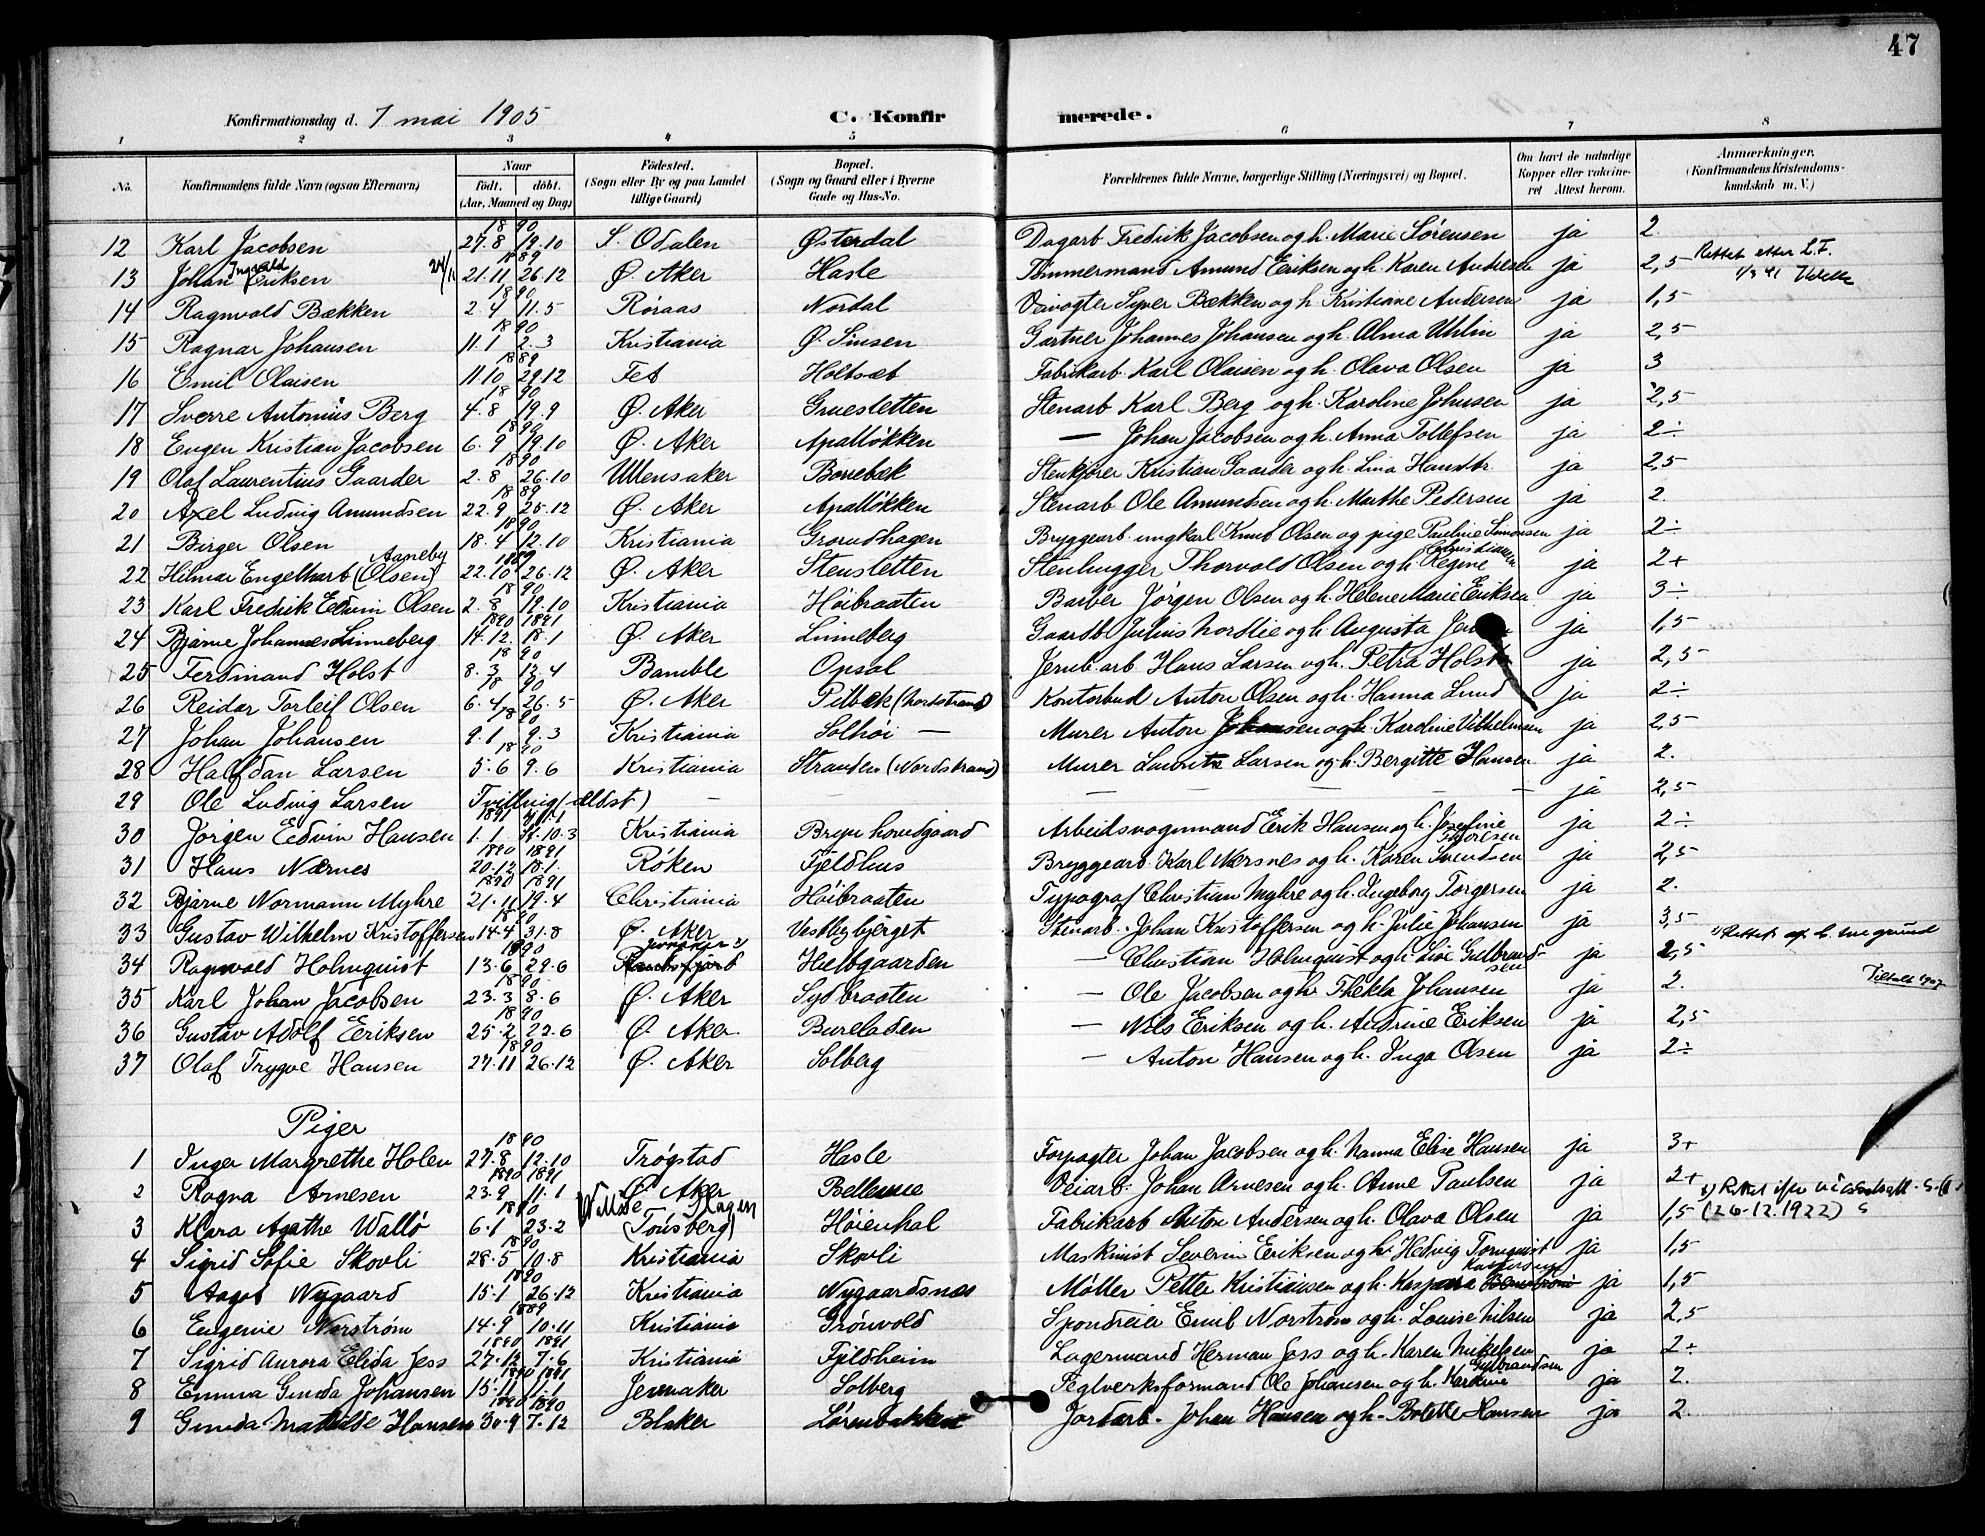 47
Konfirmationsdag d. 7 mai 1905 C. Konfirmerede.
1 2 3 4 5 6 7 8
No. Konfirmandens fulde Navn (ogsaa Efternavn) Naar født. døbt. (Aar, Maaned og Dag) Fødested. (Sogn eller By og paa Landet tillige Gaard) Bopæl. (Sogn og Gaard eller i Byerne Gade og Hus-No.) Forældrenes fulde Navne, borgerlige Stilling (Næringsvei) og Bopæl. Om havt de naturlige Kopper eller vaccineret Attest herom. Anmærkninger. (Konfirmandens Kristendomskundskab m. V.)
12 Karl Jacobsen 1890 27.8 19.10 S. Odalen Østerdal Dagarb Fredrik Jacobsen og h. Marie Sørensen ja 2.
13 Johan Ingvald Eriksen 24/11 1889 21.11 26.12 Ø. Aker Hasle Tømmermand Amund Eriksen og h. Karen Andersen ja 2,5 Rettet etter L.F.
14 Ragnvald Bækken 1890 2.4 11.5 Røraas Nordal Banevogter Syver Bækken og h. Kristiane Andersen ja 1,5
15 Ragnar Johansen 1890 11.1 2.3 Kristiania Ø. Sinsen Gartner Johannes Johansen og h. Alma Uhlin ja 2,5
16 Emil Olaisen 1889 11.10 29.12 Fet Holtsæt Fabrikarb. Karl Olaisen og h. Olava Olsen ja 3
17 Sverre Antonius Berg 1890 4.8 19.9 Ø. Aker Gruesletten Stenarb Karl Berg og h. Karoline Johnsen ja 2,5
18 Eugen Kristian Jacobsen 1890 6.9 19.10 Ø. Aker Apalløkken — Johan Jacobsen og h. Anna Tollefsen ja 2÷
19 Olaf Laurentius Gaarder 1890 2.8 26.10 Ullensaker Bonebek Stenkjører Kristian Gaarder og h. Lina Handbr. ja 2,5
20 Axel Ludvig Amundsen 1889 22.9 25.12 Ø. Aker Apalløkken Stenarb Ole Amundsen og h. Mathe Pedersen ja 2.
21 Birger Olsen 1890 18.4 12.10 Kristiania Grorudhagen Bryggearb. ungkarl Knut Olsen og pige Pauline Simonsen ja 2÷
22 Hilmar Engelhart (Olsen) Aaneby 1889 22.10 26.12 Ø. Aker Stensletten Stenhugger Thorvald Olsen og h. Regine Christiansen ja 2+
23 Karl Fredrik Edvin Olsen 1890 2.8 19.10 Kristiania Høibraaten Barber Jørgen Olsen og h. Helene Marie Eriksen ja 3÷
24 Bjarne Johannes Linneberg 1890 1891 14.12. 18.1 Ø. Aker Linneberg Gaardb. Julius Nordlie og h. Augusta ja 1,5
25 Ferdinand Holst 1890 8.3 13.4 Bamble Opsal Jernb. arb. Hans Larsen og h. Petra Holst ja 2,5
26 Reidar Torleif Olsen 1890 6.4 26.5 Ø. Aker Pilbæk (Nordstrand) Kontorbud Anton Olsen og h. Hanna Lund ja 2÷
27 Johan Johansen 1890 9.1 9.3 Kristiania Solhøi — Murer Anton Johansen og h. Karoline Vilhelmsen ja 2,5
28 Halfdan Larsen 1890 5.6 9.6 Kristiania Stranden (Nordstrand) Murer Lauritz Larsen og h. Bergitte Hansen ja 2.
29 Ole Ludvig Larsen Tvilling (ældst) — — — — — — — ja 2,5
30 Jørgen Edvin Hansen 1891 1.1 Kristiania Bryn hovedgaard Arbeidsvognmand Erik Hansen og h. Josefine Thoresen ja 2÷
31 Hans Nærnes 1890 1891 20.12 18.1. Røken Fjeldhus Bryggearb. Karl Nærsnes og h. Karen Svendsen ja 2,5
32 Bjarne Normann Myhre 1890 1891 21.11 19.4 Christiania Høibraaten Typograf Christian Myhre og h. Ingeborg Torgersen ja 2.
33 Gustav Wilhelm Kristoffersen 1890 14.4 31.8 Ø. Aker Vestbybjerget Stenarb. Johan Kristoffersen og h. Julie Johansen ja 3,5
34 Ragnvald Holmquist 1890 13.6 29.6 Jevnaker Randsfjord Hultgaarden — Christian Holmquist og h. Lise Gulbrandsen ja 2,5
35 Karl Johan Jacobsen 1890 23.3 8.6 Ø. Aker Sydbraaten — Ole Jacobsen og h. Thekla Johansen ja 2.
36 Gustav Adolf Eriksen 1890 25.2 22.6 Ø. Aker Bureladen — Nils Eriksen og h. Andrine Eriksen ja 2,5
37 Olaf Trygve Hansen 1890 27.11 26.12 Ø. Aker Solberg — Anton Hansen og h. Inga Olsen ja 2÷
Piger
1 Inger Margrethe Holen 1890 27.8 12.10 Trøgstad Hasle Forpagter Johan Jacobsen og h. Nanna Elise Hansen ja 3+
2 Ragna Arnesen 1890 1891 23.9 11.1 Ø. Aker Bellevue Veiarb. Johan Arnesen og h. Anne Paulsen ja 2+
3 Klara Agathe Wallø 1890 6.1 23.2 (Tønsberg) Slagen Høienhal Fabrikarb Anton Andersen og h. Olava Olsen ja 1,5 (26.12.1922)
4 Sigrid Sofie Skovli 1890 28.5 10.8 Kristiania Skovli Maskinist Severin Eriksen og h. Hedvig Tornquist ja 1,5
5 Aagot Nygaard 1890 15.1 26.12 Kristiania Nygaardsnæs Møller Petter Kristiansen og h. Kaspara Kaspersen ja 1,5
6 Eugenie Norstrøm 1889 14.9 10.11 Kristiania Grønvold Spondreier Emil Norstrøm og h. Louise Nilsen ja 2,5
7 Sigrid Aurora Elida Jess 1890 1891 27.12 7.6 Kristiania Fjeldheim Lagermand Herman Jess og h. Karen Mikelsen ja 2÷
8 Emma Gunda Johansen 1890 1891 15.11 11.1 Jevnaker Solberg Teglverksformand Ole Johansen og h. Karoline Gulbrandsen ja 2.
9 Gunda Mathilde Hansen 1890 1890 30.9 7.12 Blaker Lørenbakken Jordarb. Johan Hansen og h. Bolette Hansen ja 2.